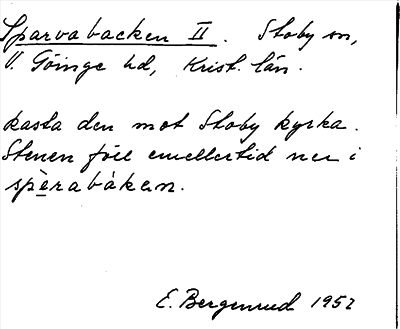 Sparvabacken II. Stoby sn,
V. Göinge hd, Krist. län.
kasta den mot Stoby kyrka.
Stenen föll emellertid ner i
spèrabákan.
E. Bergenrud 1952